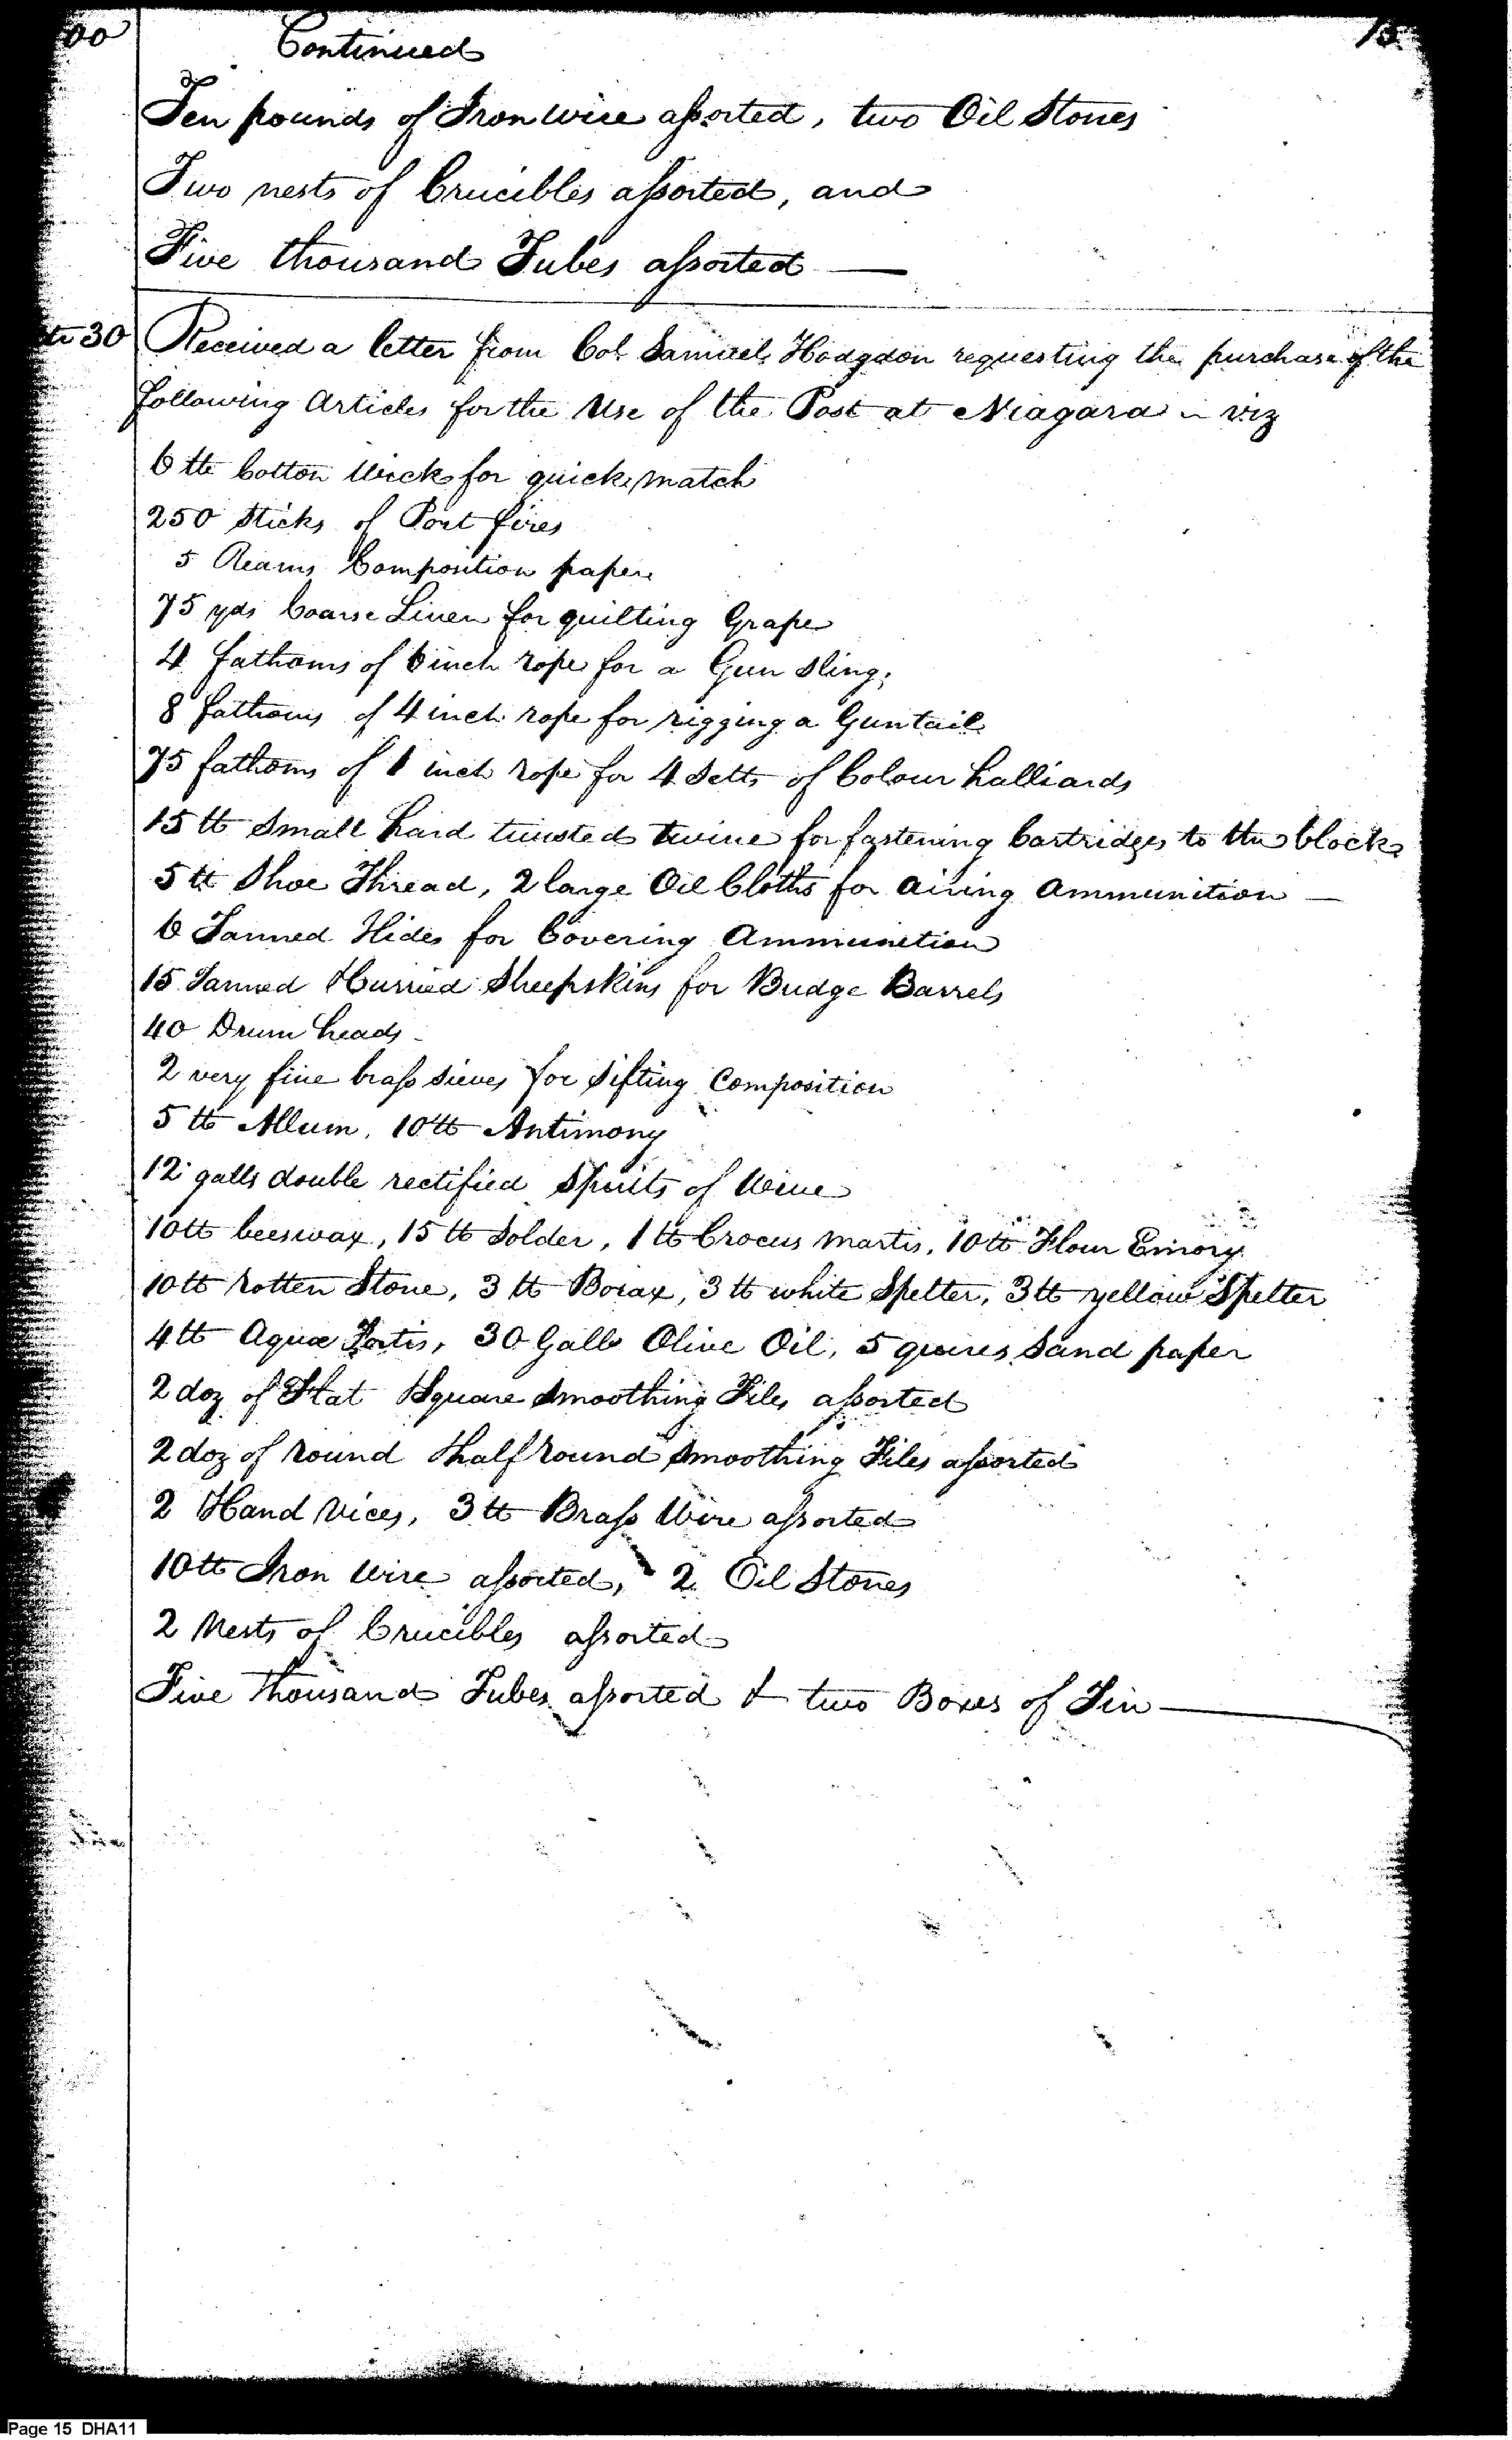 00
Continued
15
Ten pounds of Iron wire assorted, two Oil Stones
Two nests of Crucibles assorted, and
Five thousand Tubes assorted —
30 Received a letter from Col. Samuel Hodgdon requesting the purchase of the
following Articles for the Use of the Post at Niagara viz
6 lb Cotton Wick for quick match
250 Sticks of Port fires
5 Reams Composition paper
75 yds Coarse Linen for quilting Grape
4 fathoms of 6 inch rope for a Gun Sling;
8 fathoms of 4 inch rope for rigging a Guntail
75 fathoms of 1 inch rope for 4 Setts of Colour halliards
15 lb Small hard twisted twine for fastening Cartridges to the blocks
5 lb Shoe Thread, 2 large Oil Cloths for airing Ammunition —
6 Tanned Hides for Covering Ammunition
15 Tanned & Curried Sheepskins for Budge Barrels
40 Drum heads
2 very fine brass sieves for Sifting Composition
5 lb Allum, 10 lb Antimony
12 galls double rectified Spirits of Wine
10 lb beeswax, 15 lb Solder, 1 lb Crocus martis, 10 lb Flour Emory
10 lb rotten Stone, 3 lb Borax, 3 lb white Spelter, 3 lb yellow Spelter
4 lb Aqua Fortis, 30 Galls Olive Oil, 5 quires Sand paper
2 doz of Flat & Square Smoothing Files assorted
2 doz of round & half round Smoothing Files assorted
2 Hand Vices, 3 lb Brass Wire assorted
10 lb Iron Wire assorted, 2 Oil Stones
2 Nests of Crucibles assorted
Five thousand Tubes assorted & two Boxes of Tin —
Page 15 DHA11